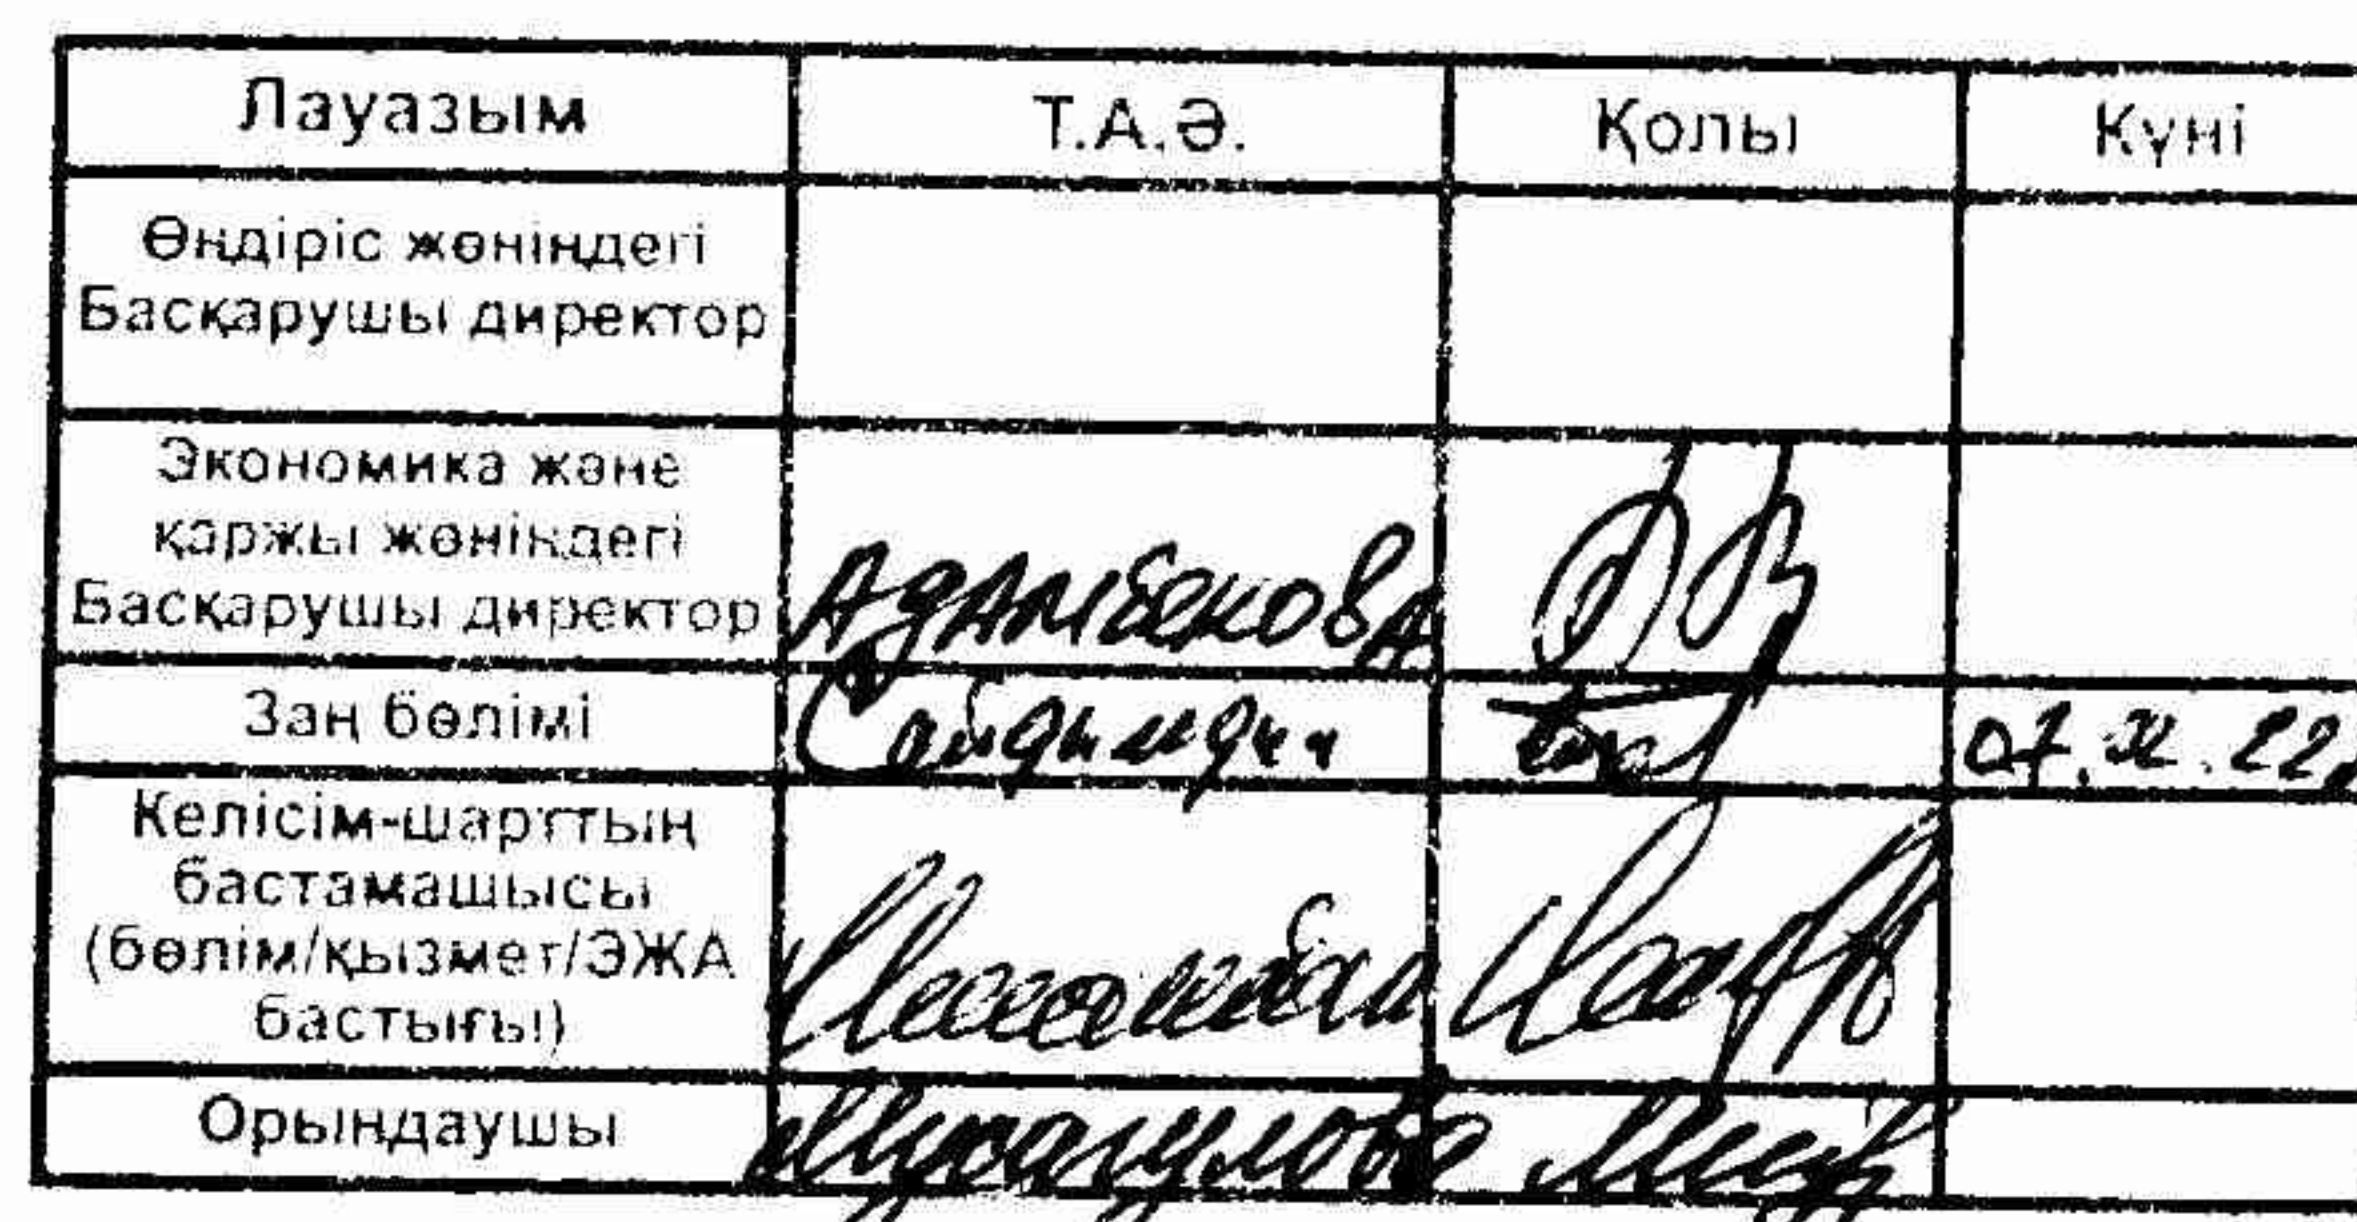 Лауазым Т.А.Ә. Қолы Күні
Өндіріс жөніндегі
Басқарушы директор
Экономика және
қаржы жөніндегі
Басқарушы директор Адамбекова
Заң бөлімі 07.XI.22
Келісім-шарттың
бастамашысы
(бөлім/қызмет/ЭЖА
бастығы)
Орындаушы